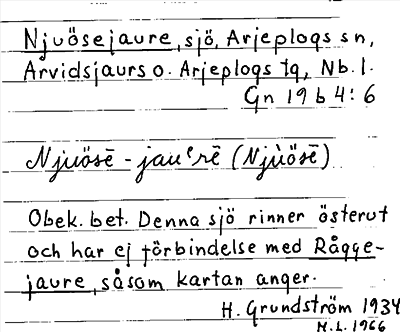 Njuösejaure, sjö, Arjeplogs sn,
Arvidsjaurs o. Arjeplogs tg, Nb. l.
Gn 19 b 4: 6
Njuösē - jauᵉrē (Njùösē)
Obek. bet. Denna sjö rinner österut
och har ej förbindelse med Rågge-
jaure, såsom kartan anger.
H. Grundström 1934
H.L. 1966